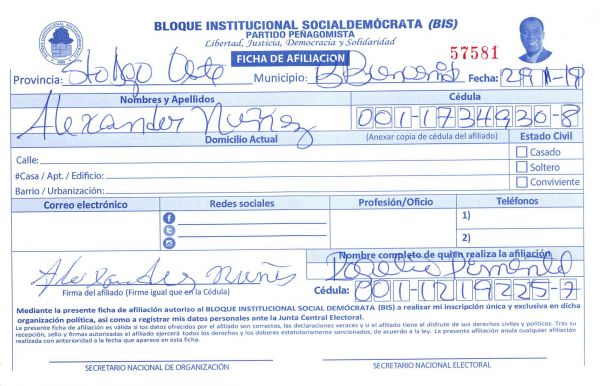 BLOQUE INSTITUCIONAL SOCIALDEMÓCRATA (BIS)
PARTIDO PEÑAGOMISTA
Libertad, Justicia, Democracia y Solidaridad
FICHA DE AFILIACIÓN
57581
Provincia: Stodgo Oeste Municipio: Fecha:
Nombres y Apellidos Cédula
Alexander Nuñez 001-1734930-8
Domicilio Actual (Anexar copia de cédula del afiliado) Estado Civil
Calle: Casado
#Casa / Apt. / Edificio: Soltero
Barrio / Urbanización: Conviviente
Correo electrónico Redes sociales Profesión/Oficio Teléfonos
1)
2)
Nombre completo de quien realiza la afiliación
Alexander Nuñes Rogelio Pimentel
Firma del afiliado (Firme igual que en la Cédula) Cédula: 001-1219225-7
Mediante la presente ficha de afiliación autorizo al BLOQUE INSTITUCIONAL SOCIAL DEMÓCRATA (BIS) a realizar mi inscripción única y exclusiva en dicha
organización política, así como a registrar mis datos personales ante la Junta Central Electoral.
La presente ficha de afiliación es válida si los datos ofrecidos por el afiliado son correctos, las declaraciones veraces y si el afiliado tiene el disfrute de sus derechos civiles y políticos. Tras su
recepción, sello y firmas autorizadas el afiliado ejercerá todos los derechos y los deberes estatutariamente sancionados, de acuerdo a la ley. La presente afiliación anula cualquier afiliación
realizada con anterioridad a la fecha que aparece en esta ficha.
SECRETARIO NACIONAL DE ORGANIZACIÓN SECRETARIO NACIONAL ELECTORAL